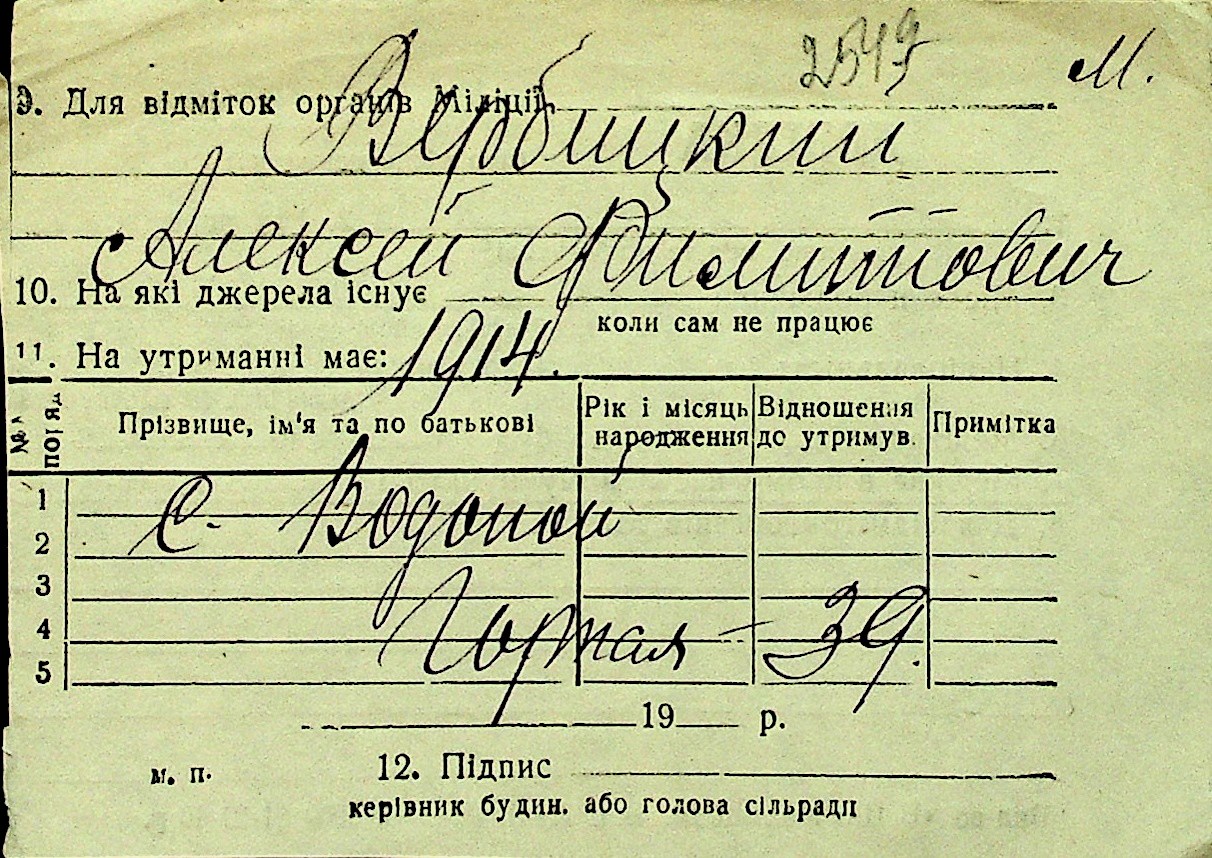 2549 М.
9. Для відміток органів Міліції
Вербицкий
Алексей Филиппович
10. На які джерела існує
коли сам не працює
11. На утриманні має:
1914.
№№ поряд Прізвище, ім'я та по батькові Рік і місяць народження Відношення до утримув. Примітка
1
с. Водопой
2
3
4
Горная – 39.
5
19 р.
м. п. 12. Підпис
керівник будин. або голова сільради